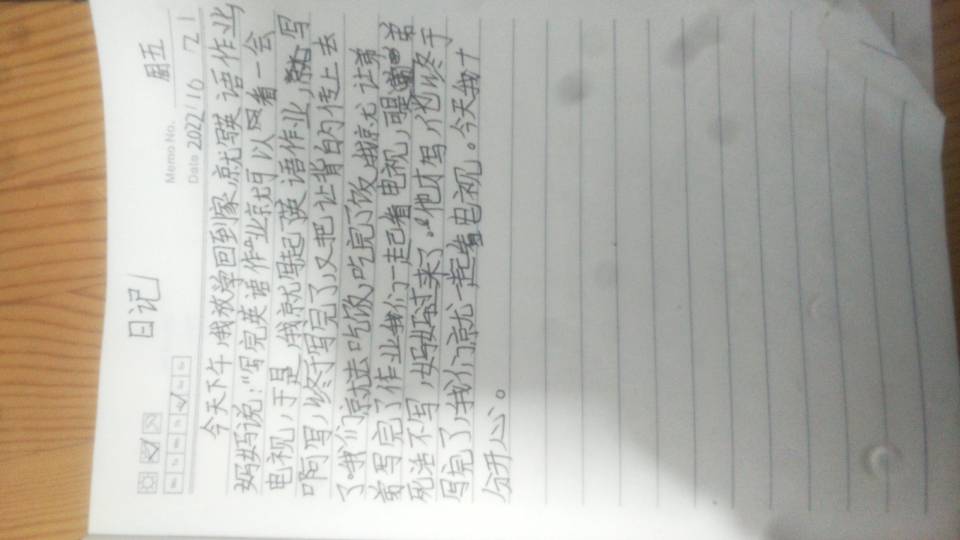 日记
周五
Memo No.
Date 2022/10 21
今天下午,我放学回到家,就写英语作业
妈妈说:"写完英语作业就可以看一会
电视,于是,我就写起英语作业,写
啊写,终于写完了,又把让背的传上去
了,我们就去吃饭,吃完了饭,我就让弟
弟写完了作业我们一起看电视,可是弟
死活不写,妈妈过来了,他才写,他终于
写完了,我们就一起看电视。今天我十
分开心。